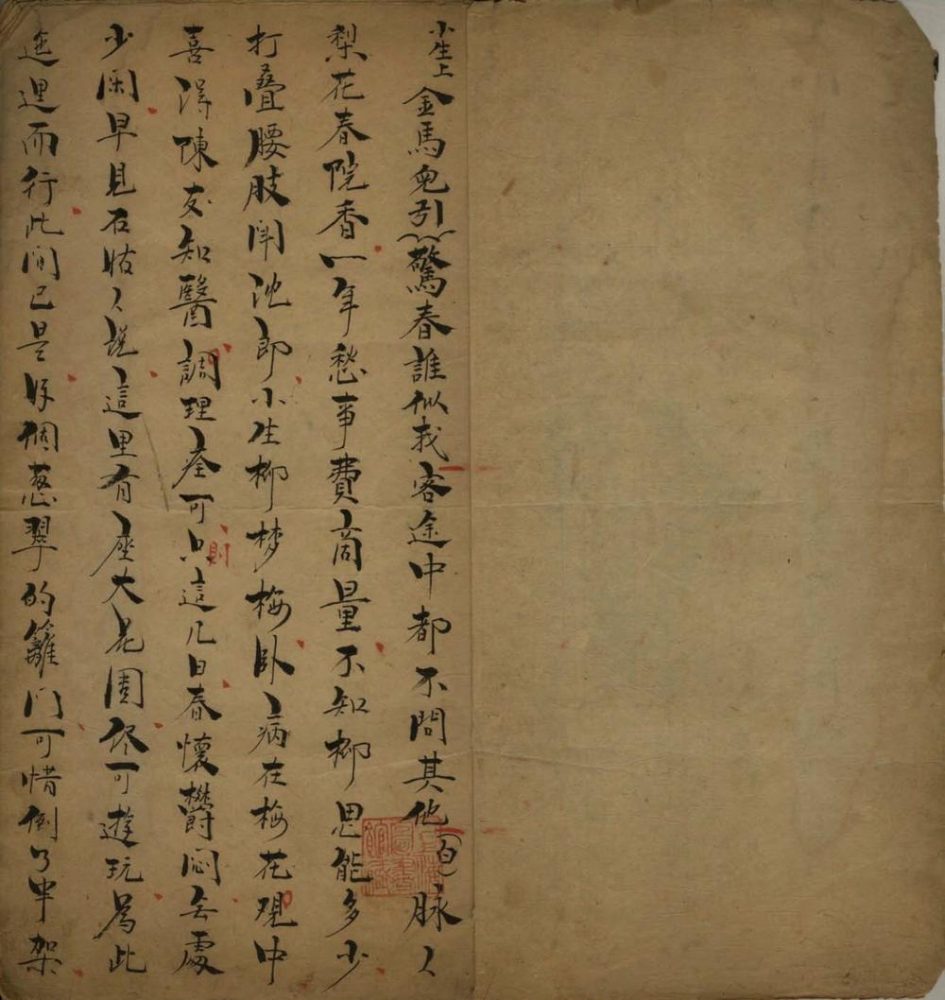 小生上 金馬兒引 驚春誰似我客途中都不問其他(白)脉〻
梨花春院香一年愁事費商量不知柳思能多少
打疊腰肢鬥沈郎小生柳梦梅卧病在梅花观中
喜得陳友知醫調理痊可只則這几日春懷欝悶無處
少闲早見石姑〻說這里有座大花園侭可遊玩為此
迤逞而行此间已是好個葱翠的籬门可惜倒了半架
上海圖書館藏